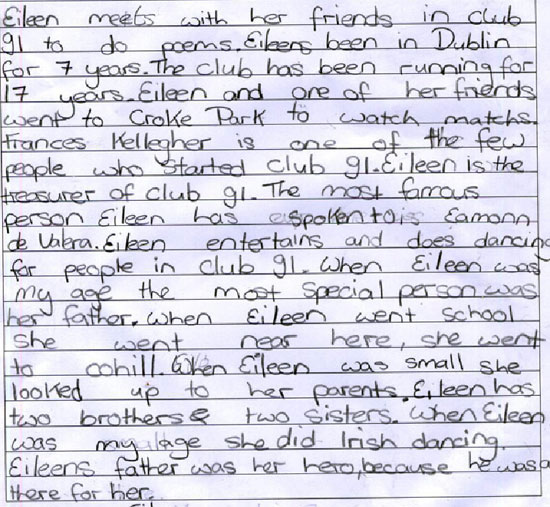 Eileen meets with her friends in club
91 to do poems. Eileens been in Dublin
for 7 years. The club has been running for
17 years. Eileen and one of her friends
went to Croke Park to watch matchs.
Frances Kellegher is one of the few
people who started club 91. Eileen is the
treasurer of club 91. The most famous
person Eileen has spoken to is Eamonn
de Valera. Eileen entertains and does dancing
for people in club 91. When Eileen was
my age the most special person was
her father. When Eileen went school
she went near here, she went
to cohill. When Eileen was small she
looked up to her parents. Eileen has
two brothers & two sisters. When Eileen
was my age she did Irish dancing.
Eileens father was her hero, because he was
there for her.